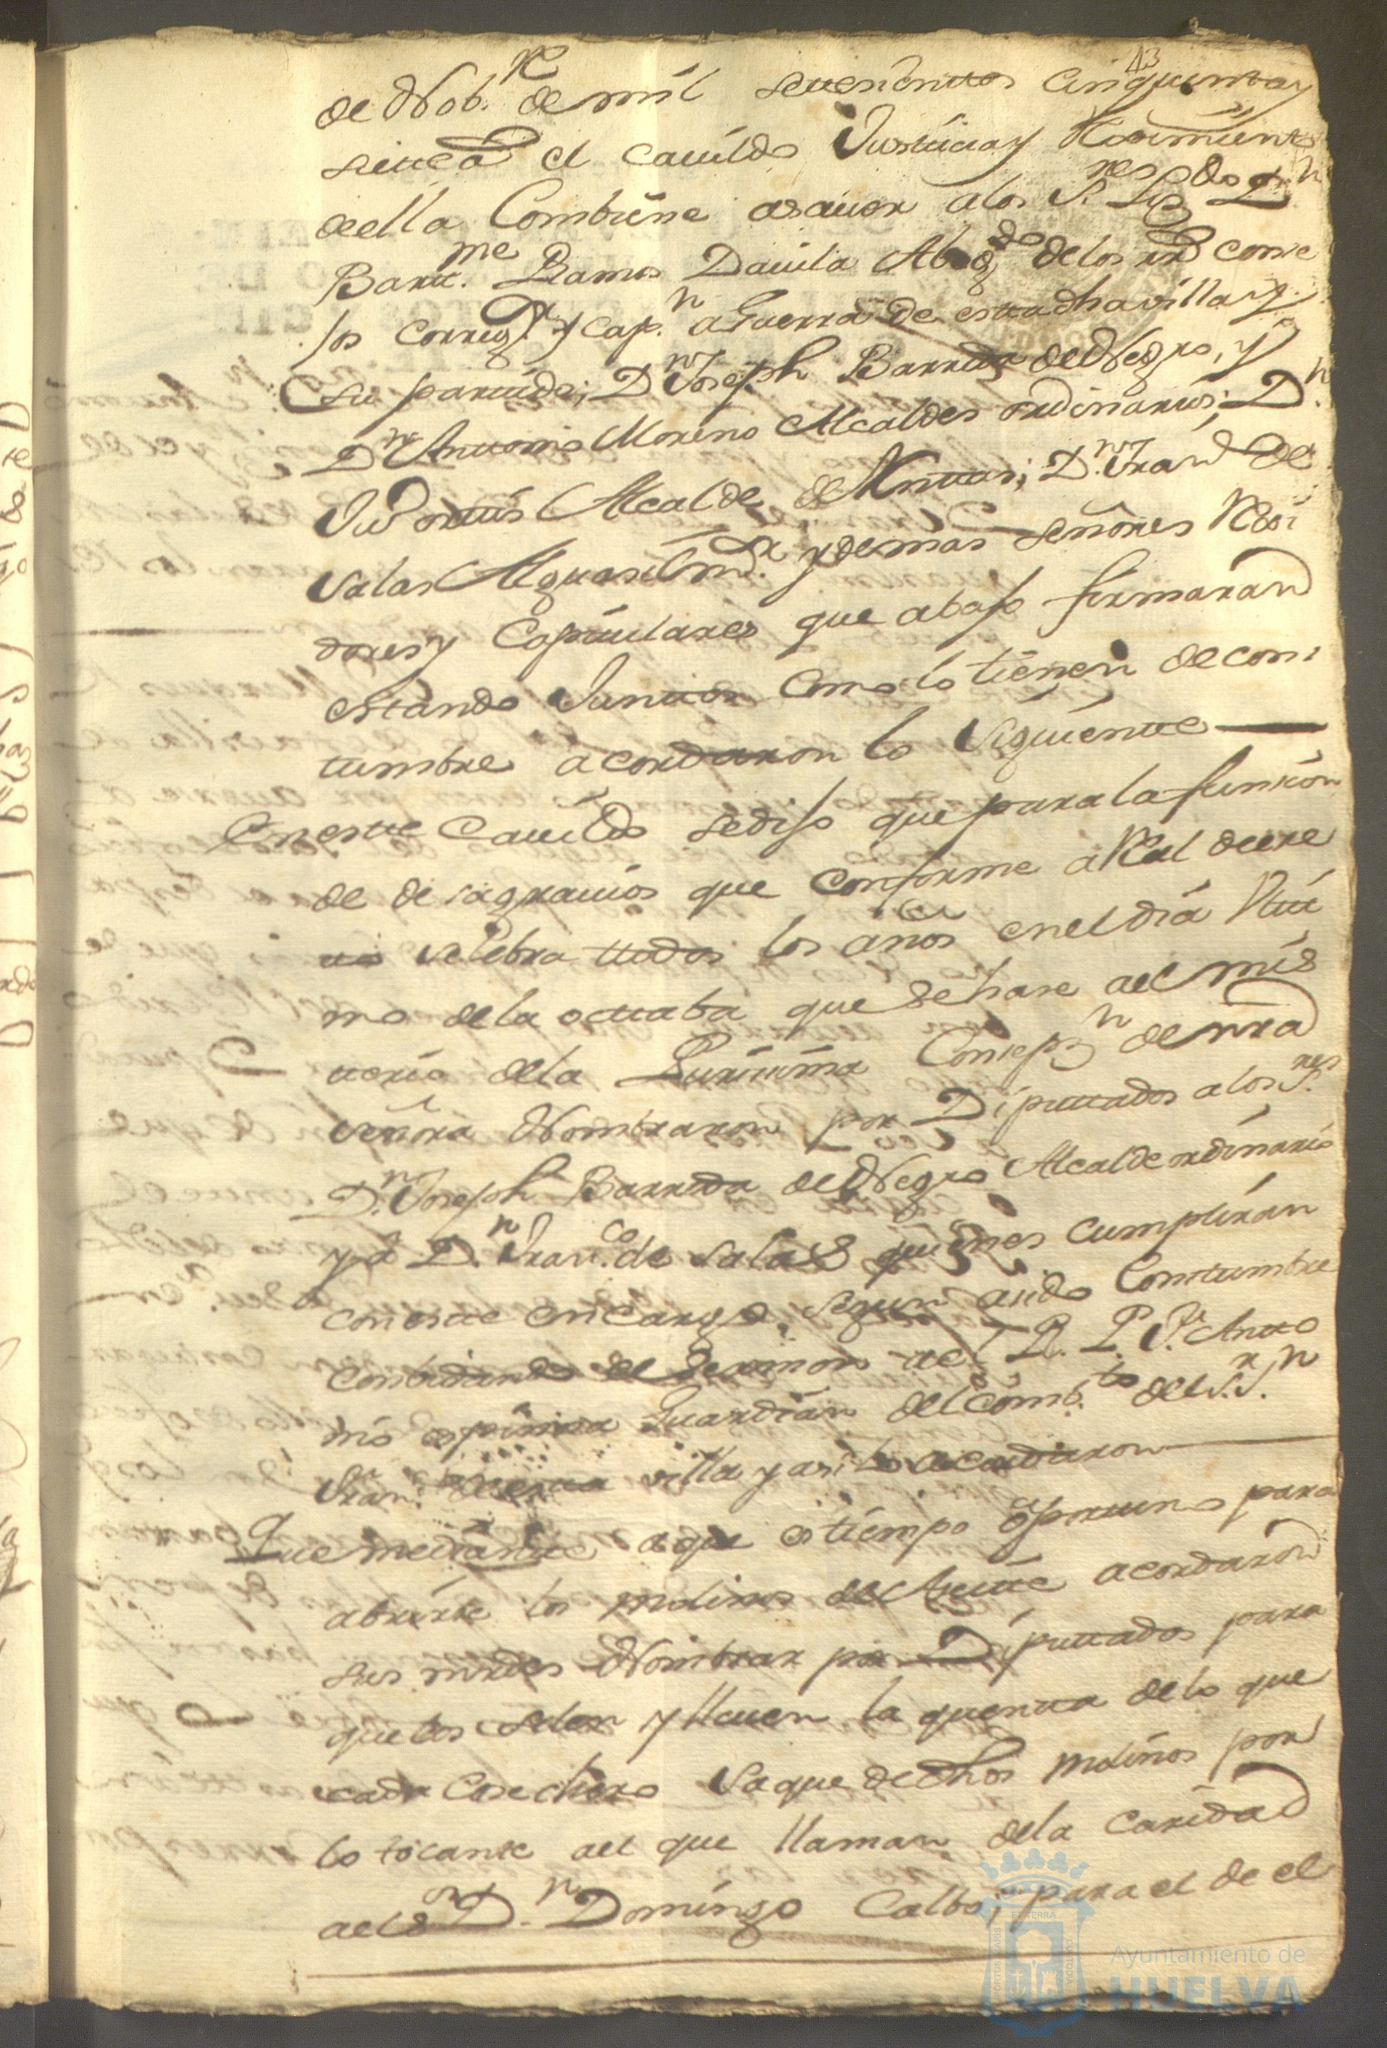 43
de Nob.re de mil setesientos cinquenta y
siette a el cavildo Justicia y Rexim.to
de ella Combiene asaver a los S.res Liz.do D.n
Bart.me Ramos Davila Abog.do de los R.s conse
jos Correg.r y Cap.n a Guerra de esta dha villa y
su partido; D.n Joseph Barreda del Negro, y
D.n Anttonio Moreno Alcaldes ordinarios; D.n
Alcalde de Mittas; D.n Fran.co de
Salas Alguasil m.r y demas señores Rexi
dores y Capitulares que abajo firmaran
estando Junttos como lo tienen de cos
tumbre acordaron lo siguiente
En este Cavildo se dijo que para la funsion
de desagravios que conforme a Real decre
tto se selebra ttodos los años en el dia Ulti
mo de la octtaba que se hase a el mis
terio de la Purissima Consepz.n de nra
señora Nombraron por Diputtados a los S.res
D.n Joseph Barreda del Negro Alcalde ordinario
y a D.n Fran.co de Salas quienes cumpliran
con este encargo segun a sido Costumbre
conbidando el Sermon a el R. P. F. Antto
nio espinosa Guardian del Comb.to del S.r S.n
Fran.co de esta villa y asi lo acordaron
Que mediante a que es tiempo oportuno para
abrirse los molinos de Aseite acordaron
sus mrdes Nombrar por Diputtados para
que los selen y lleven la quenta de lo que
cada Cosechero saque de dhos molinos por
lo tocante a el que llaman de la Caridad
a el S.or D.n Domingo Calbo; para el de el
Ayuntamiento de
HUELVA